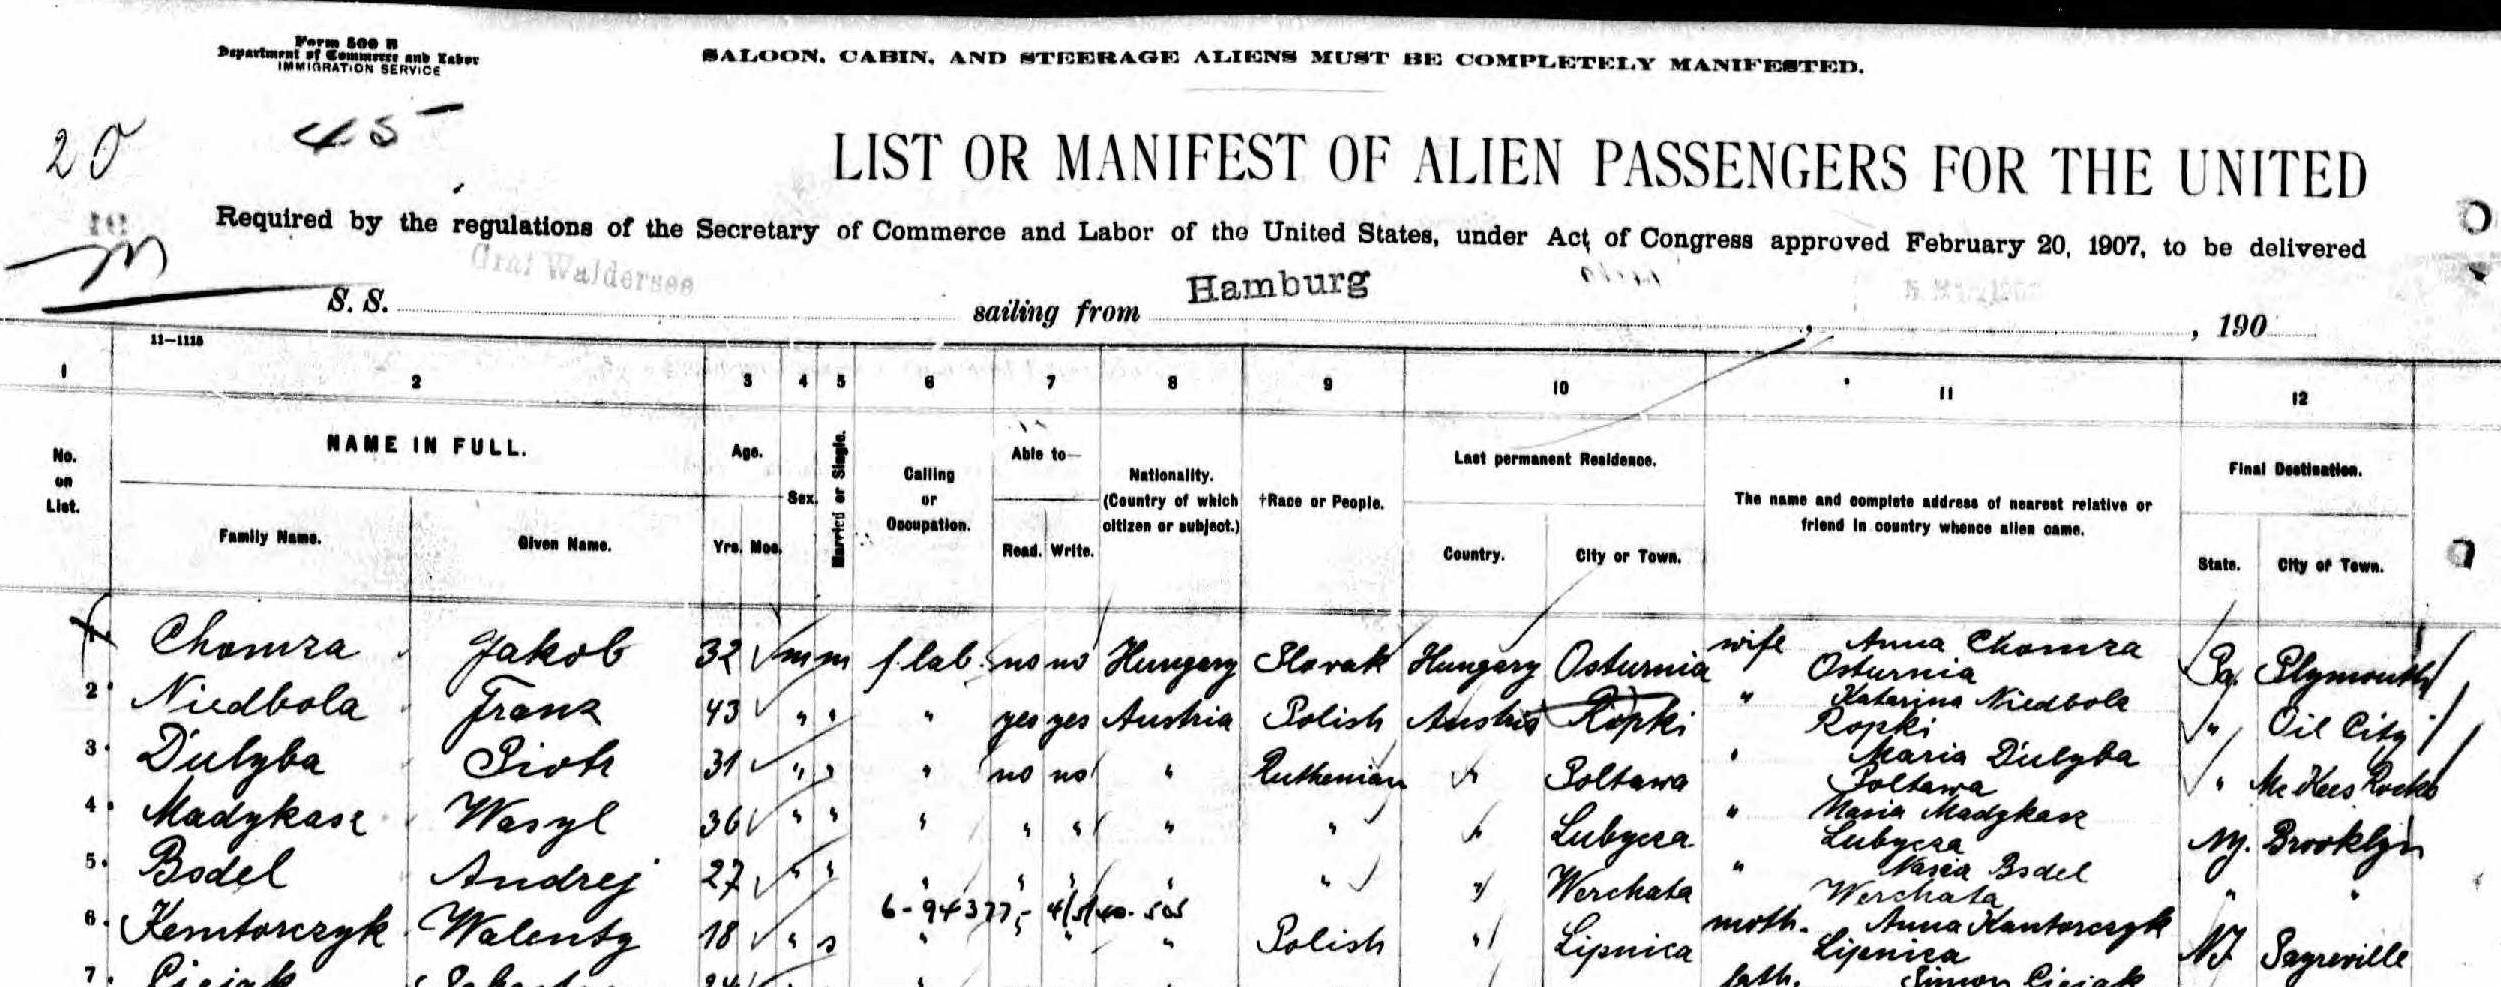 Form 500 B
Department of Commerce and Labor
IMMIGRATION SERVICE
SALOON, CABIN, AND STEERAGE ALIENS MUST BE COMPLETELY MANIFESTED.
20 45
LIST OR MANIFEST OF ALIEN PASSENGERS FOR THE UNITED
Required by the regulations of the Secretary of Commerce and Labor of the United States, under Act of Congress approved February 20, 1907, to be delivered
S. S. Graf Waldersee sailing from Hamburg , 190
11—1118
1 2 3 4 5 6 7 8 9 10 11 12
No. on List.
NAME IN FULL.
Family Name. Given Name.
Age.
Yrs. Mos.
Sex.
Married or Single.
Calling or Occupation.
Able to—
Read. Write.
Nationality. (Country of which citizen or subject.)
†Race or People.
Last permanent Residence.
Country. City or Town.
The name and complete address of nearest relative or friend in country whence alien came.
Final Destination.
State. City or Town.
1 Chomza Jakob 32 m m f. lab. no no Hungary Slovak Hungary Osturnia wife Anna Chomza Osturnia Pa. Plymouth
2 Niedbola Franz 43 " " " yes yes Austria Polish Austria Ropki " Katarina Niedbola Ropki " Oil City
3. Dulyba Piotr 31 " " " no no " Ruthenian " Poltawa " Maria Dulyba Poltawa " Mc Kees Rocks
4. Madykasz Wasyl 36 " " " " " " " " Lubycza " Maria Madykasz Lubycza NY. Brooklyn
5. Bsdel Andrej 27 " " " " " " " " Werchata " Bsdel Werchata " "
6-94377
6. Kemtorczyk Walenty 18 " s " " " Polish " Lipnica moth. Anna Kantorczyk Lipnica NJ Sayreville
7. 24 fath. Simon